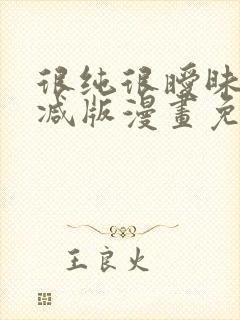 很纯很暧昧
减版漫畫免
王良火